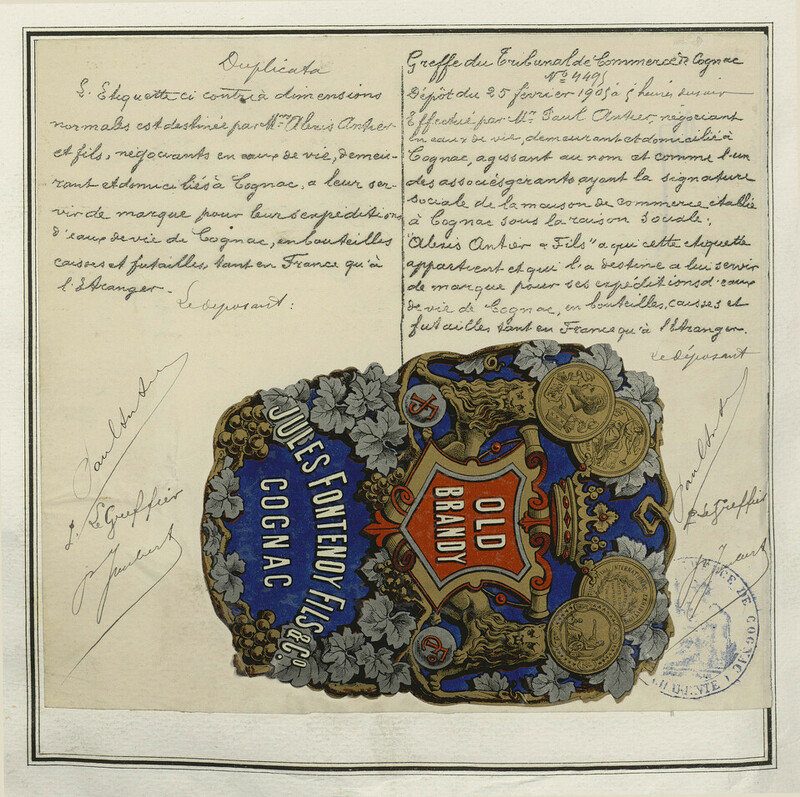 Duplicata
L'Etiquette ci contre à dimensions
normales est destinée par Mrs Alexis Antier
et fils, négociants en eaux de vie, demeu-
rant et domiciliés à Cognac, a leur ser-
vir de marque pour leurs expéditions
d'eaux de vie du Cognac, en bouteilles
caisses et futailles, tant en France qu'à
l'Etranger.
Le déposant:
Paul Antier
P. Le Greffier
Greffe du Tribunal de Commerce de Cognac
No 4495
Dépôt du 25 février 1905 à 5 heures du soir
Effectué par Mr Paul Antier, négociant
en eaux de vie, demeurant et domicilié à
Cognac, agissant au nom et comme l'un
des associés gérants ayant la signature
sociale de la maison de commerce établie
à Cognac sous la raison sociale:
"Alexis Antier & Fils" a qui cette étiquette
appartient et qui l'a destine a lui servir
de marque pour ses expéditions d'eaux
de vie de Cognac, en bouteilles, caisses et
futailles tant en France qu'à l'Etranger.
Le déposant
Paul Antier
P. Le Greffier
OLD
BRANDY
JULES FONTENOY FILS & Co.
COGNAC
DE COGNAC
CHARENTE